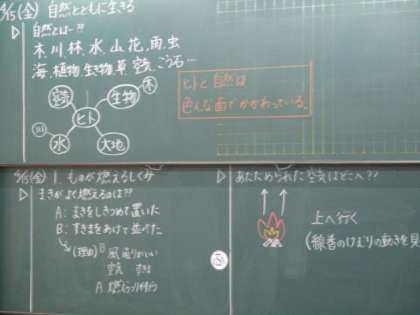 4/15(金) 自然とともに生きる
▷ 自然とは…??
木、川、林、水、山、花、雨、虫
海、植物、生き物、草、空気、ごう石…
空気
生物
木
ヒト
川
水
大地
ヒトと自然は
色んな面でかかわっている。
4/15(金) 1. ものが燃えるしくみ
▷ まきがよく燃えるのは??
A: まきをしきつめて置いた
B: すきまをあけて並べた
(理由) B 風通りがいい
空気
A 燃え
▷ あたためられた空気はどこへ??
上へ行く
(線香のけむりの動きを見